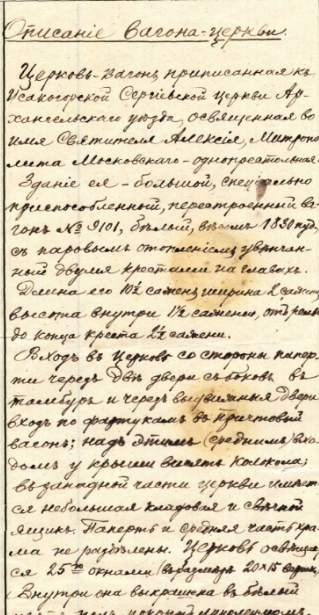 Описаніе вагона-церкви.
Церковь-вагонъ приписанная къ
Исакогорской Сергіевской церкви Ар-
хангельскаго уѣзда, освященная во
имя Святителя Алексія, Митропо
лита Московскаго - однопрестольная.
Зданіе ея - большой, спеціально
приспособленный, перестроенный ва-
гонъ № 9101, бѣлый, вѣсомъ 1830 пуд,
съ паровымъ отопленіемъ, увѣнчан-
ный двумя крестами на главахъ.
Длина его саженъ ширина 2 сажени,
высота внутри сажени, отъ
до конца креста сажени.
Входъ въ Церковь со стороны папер-
ти чрезъ двѣ двери съ боковъ въ
тамбуръ и чрезъ двери
входъ по фартукамъ въ причтовый
вагонъ; надъ этимъ (среднимъ) вхо-
домъ у крыши висятъ колокола;
въ западной части церкви имѣет-
ся небольшая кладовая и свѣчной
ящикъ. Паперть и средняя часть хра-
ма не раздѣлены. Церковь освѣщает-
ся 25ю окнами 20 15
Внутри она выкрашена въ бѣлый